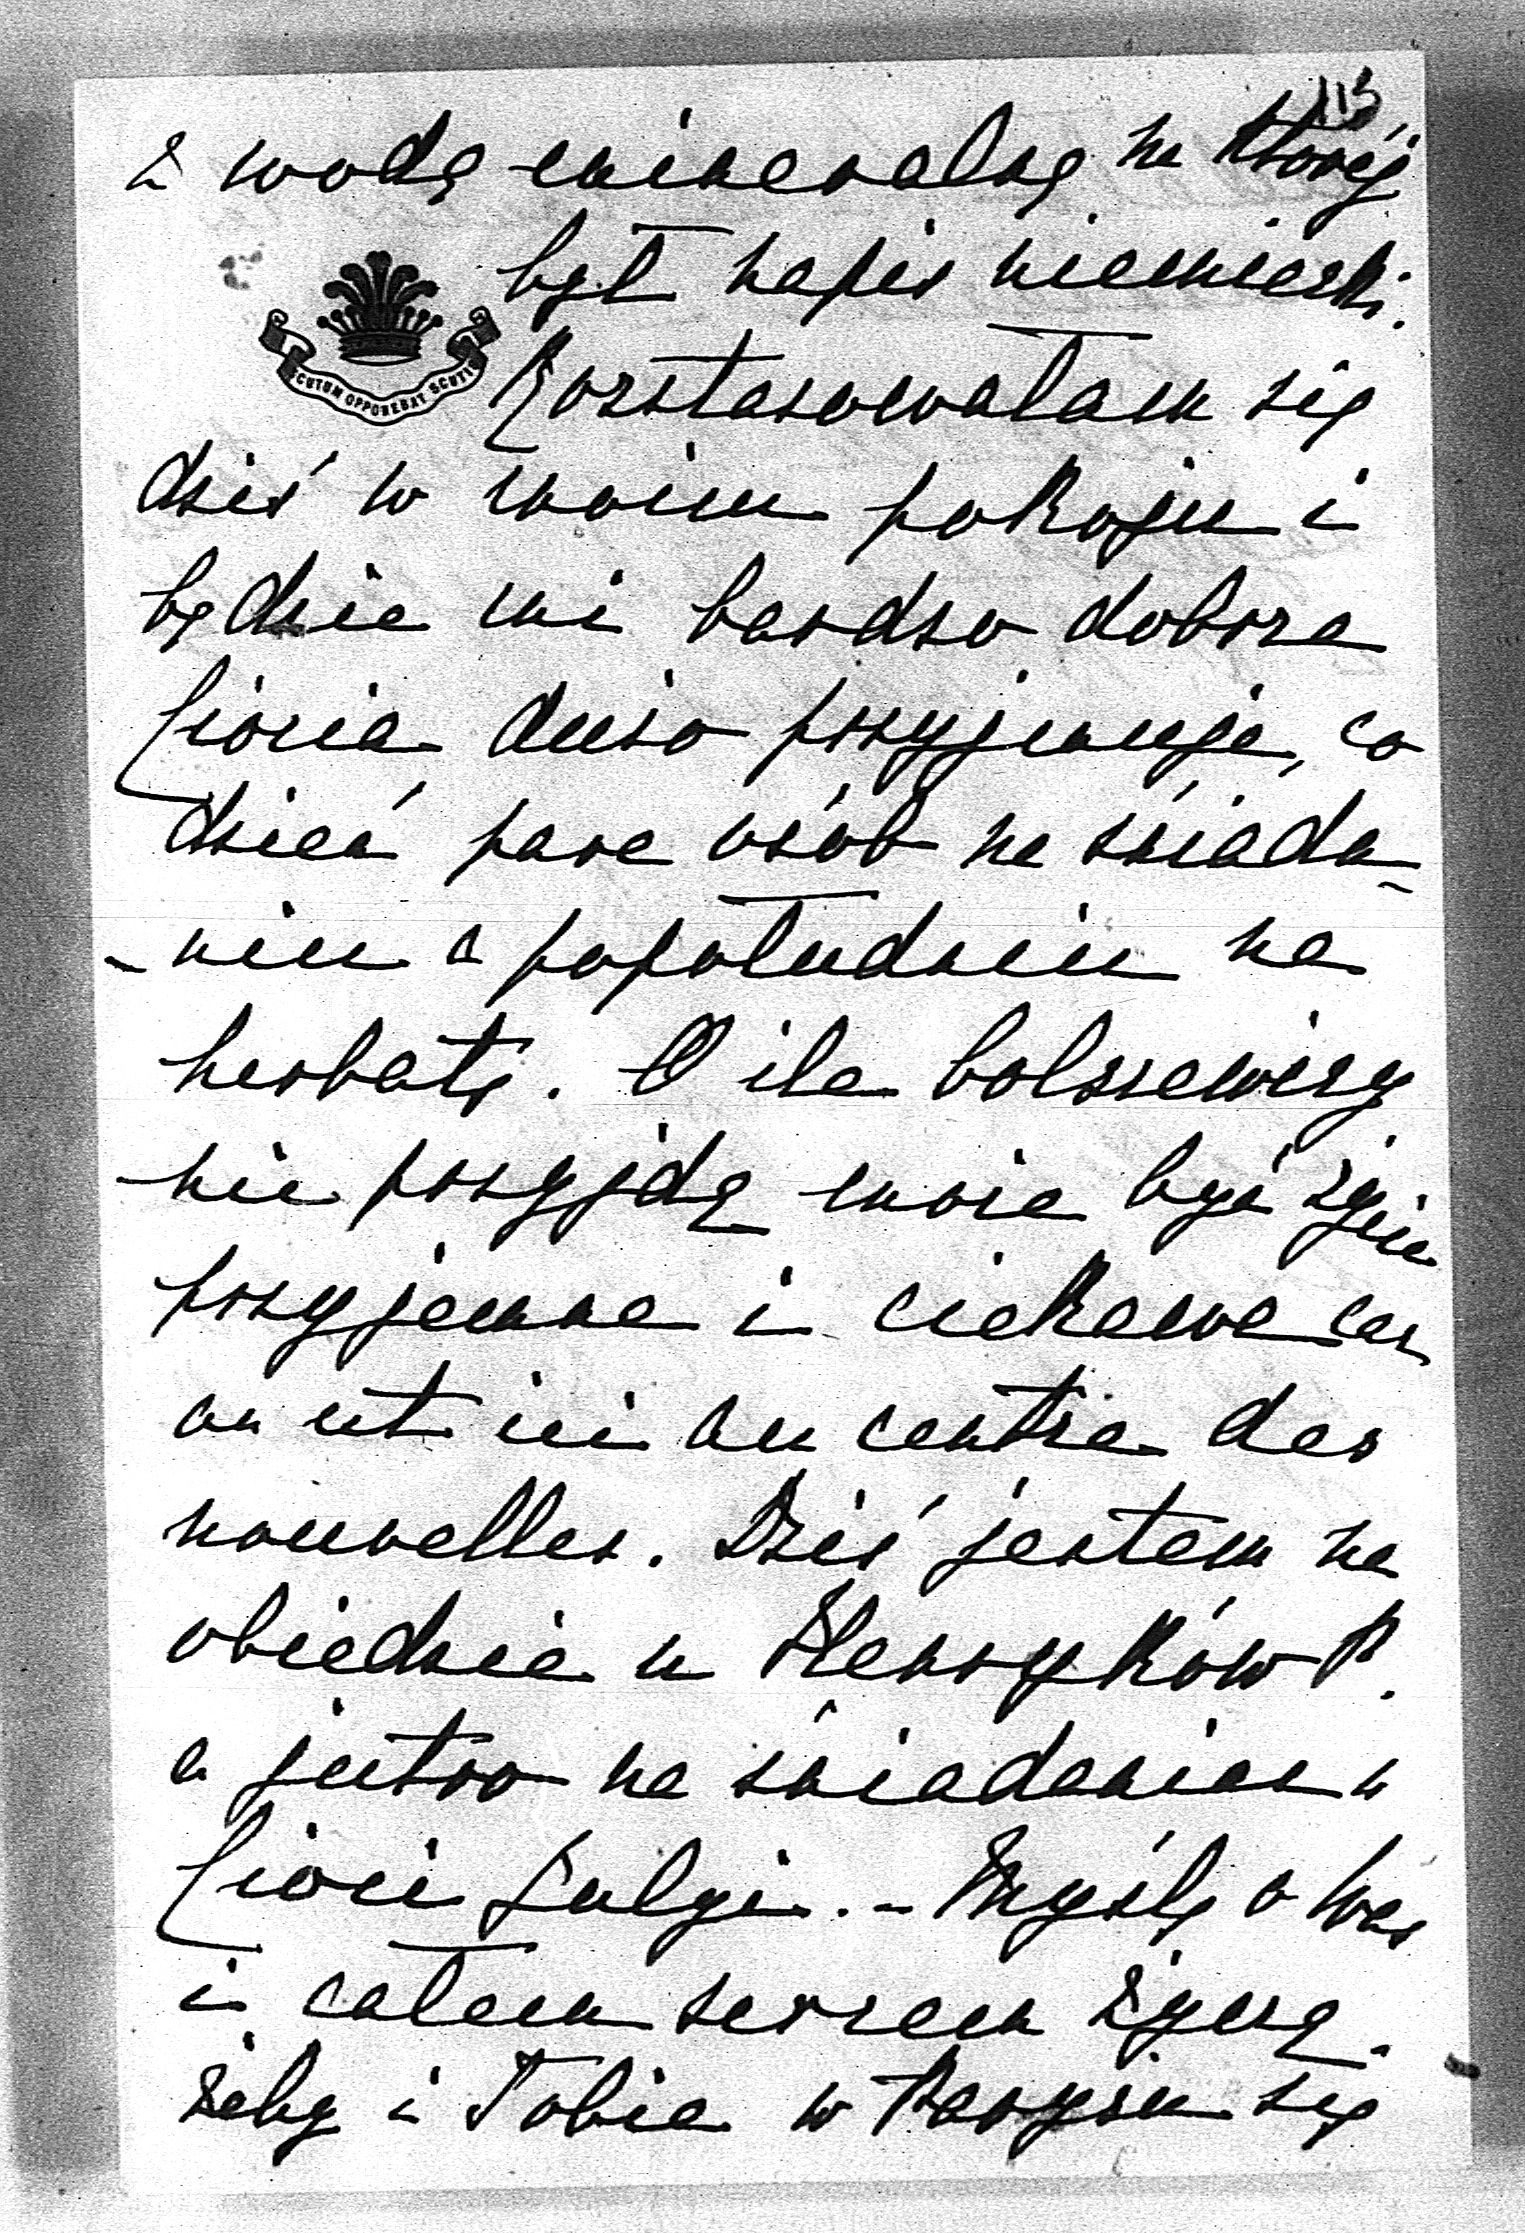 113
z wodą mineralną na której
był napis niemiecki.
SCUTUM OPPONEBAT SCUTIS
Rozstasowałam się
dziś w moim pokoju i
będzie mi bardzo dobrze
Ciocia dużo przyjmuje, co
dzień parę osób na śniada-
-niu a popołudniu na
herbatę. O ile bolszewicy
nie przyjdą może być życie
przyjemne i ciekawe car
on est ici au centre des
nouvelles. Dziś jestem na
obiedzie u Henryków P.
a jutro na śniadaniu u
Cioci Zulzi. - Myślę o Was
i całem sercem życzę
żeby i Tobie w Paryżu się